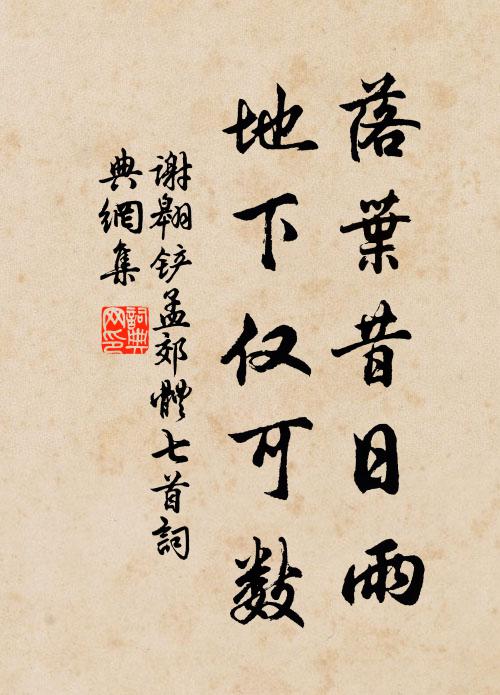 落葉昔日雨
地下仅可數
谢翱铲孟郊體七首詞
典網集
詞典网印